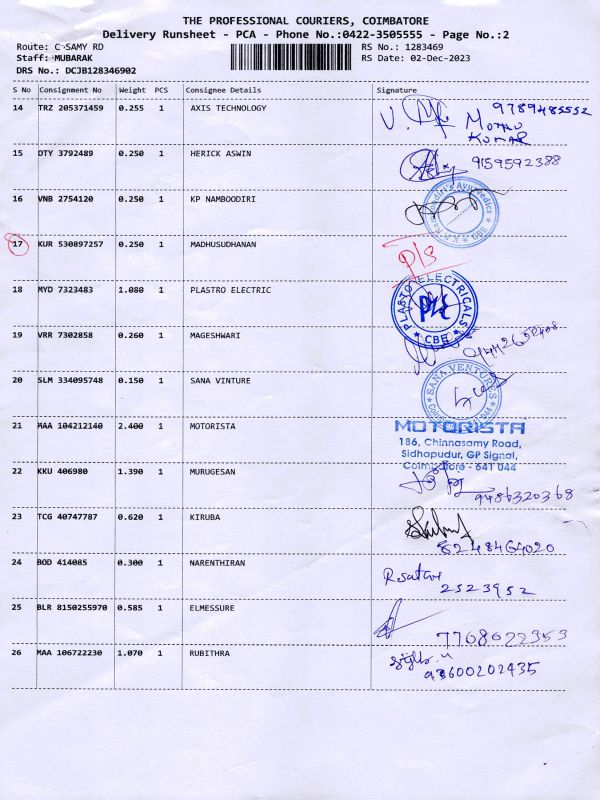 THE PROFESSIONAL COURIERS, COIMBATORE
Delivery Runsheet - PCA - Phone No.:0422-3505555 - Page No.:2
Route: C SAMY RD
RS No.: 1283469
Staff: MUBARAK
RS Date: 02-Dec-2023
DRS No.: DCJB128346902
S No Consignment No Weight PCS Consignee Details Signature
14 TRZ 205371459 0.255 1 AXIS TECHNOLOGY
9789485552
MOTHU
KUMAR
15 DTY 3792489 0.250 1 HERICK ASWIN
9159592388
16 VNB 2754120 0.250 1 KP NAMBOODIRI
17 KUR 530897257 0.250 1 MADHUSUDHANAN
P/S
18 MYD 7323483 1.080 1 PLASTRO ELECTRIC
PLASTO ELECTRICALS
CBE
19 VRR 7302858 0.260 1 MAGESHWARI
20 SLM 334095748 0.150 1 SANA VINTURE
SANA VENTURES
21 MAA 104212140 2.400 1 MOTORISTA
MOTORISTA
186, Chinnasamy Road,
Sidhapudur, GP Signal,
Coimbatore - 641 044
22 KKU 406980 1.390 1 MURUGESAN
9486320368
23 TCG 40747787 0.620 1 KIRUBA
8248464020
24 BOD 414085 0.300 1 NARENTHIRAN
2523952
25 BLR 8150255970 0.585 1 ELMESSURE
7708622353
26 MAA 106722230 1.070 1 RUBITHRA